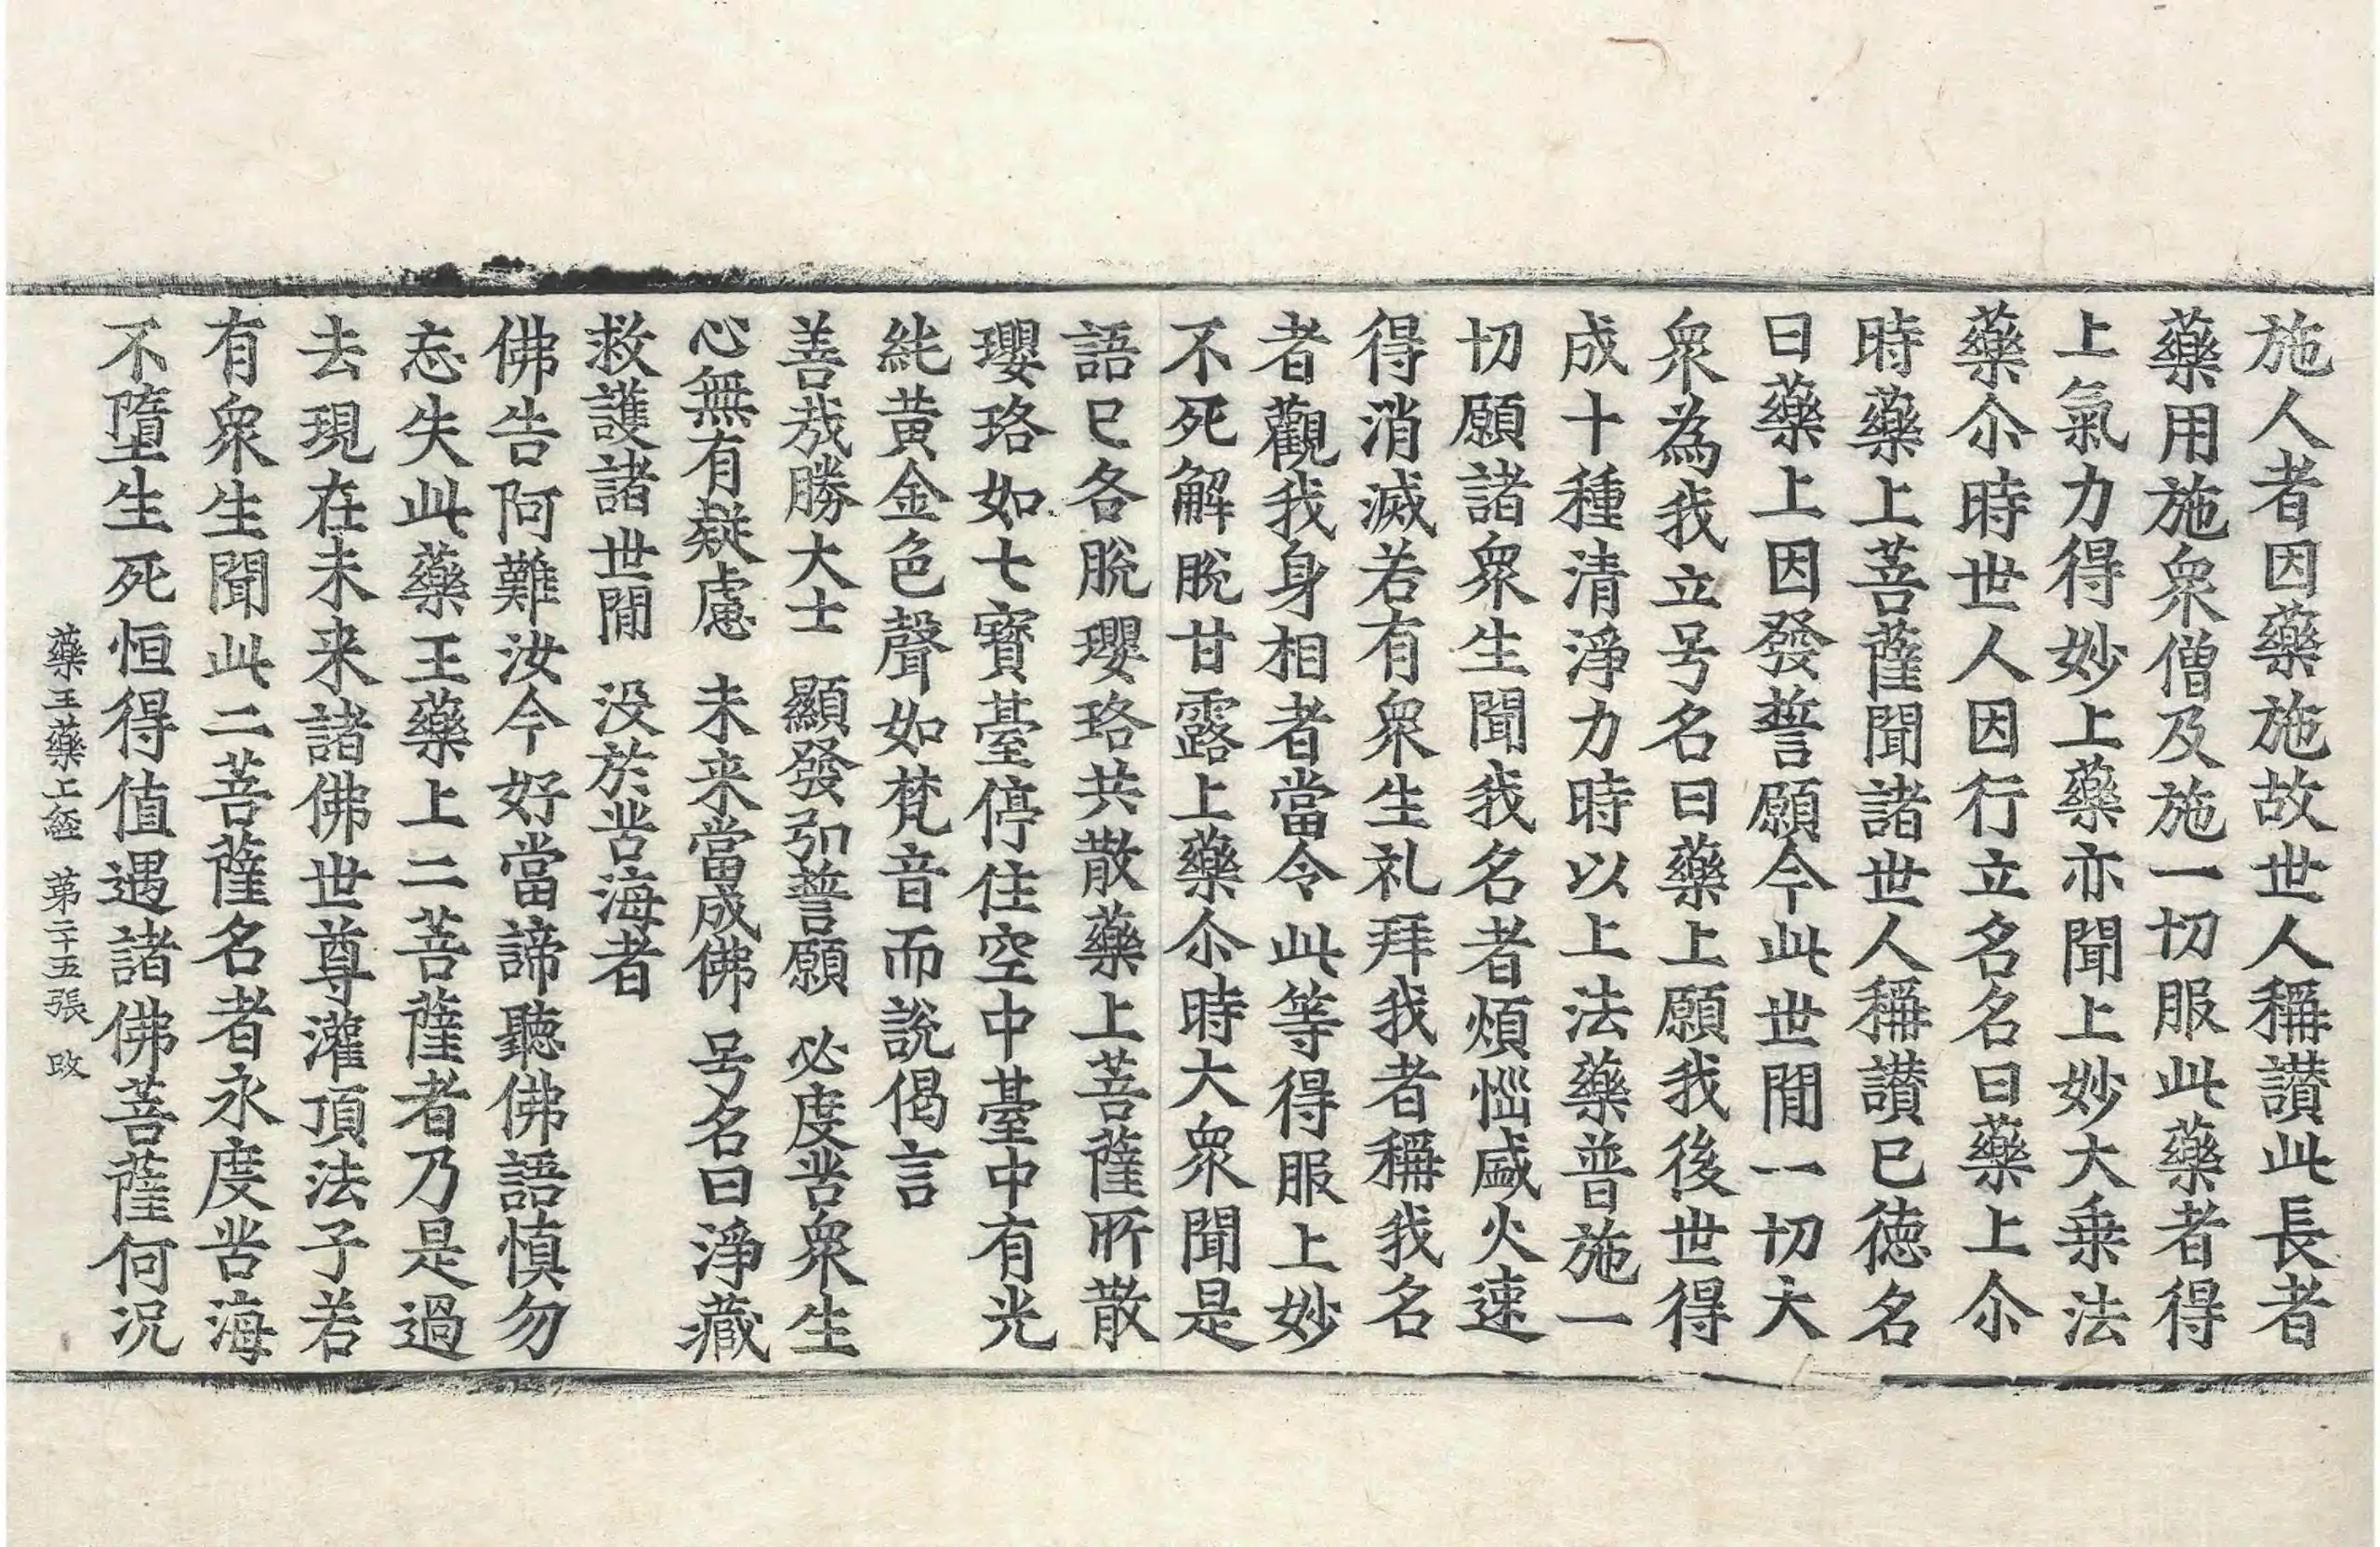 施人者因藥施故世人稱讃此長者
藥用施衆僧及施一切服此藥者得
上氣力得妙上藥亦聞上妙大乗法
藥尒時世人因行立名名曰藥上尒
時藥上菩薩聞諸世人稱讃已徳名
曰藥上因發誓願今此世閒一切大
衆為我立号名曰藥上願我後世得
成十種清淨力時以上法藥普施一
切願諸衆生聞我名者煩惱盛火速
得消滅若有衆生礼拜我者稱我名
者觀我身相者當令此等得服上妙
不死解脫甘露上藥尒時大衆聞是
語已各脫瓔珞共散藥上菩薩所散
瓔珞如七寳臺停住空中臺中有光
純黄金色聲如梵音而說偈言
善哉勝大士　顯發弘誓願　必度苦衆生
心無有疑慮　未来當成佛　号名曰淨藏
救護諸世閒　没於苦海者
佛告阿難汝今好當諦聽佛語慎勿
忘失此藥王藥上二菩薩者乃是過
去現在未来諸佛世尊灌頂法子若
有衆生聞此二菩薩名者永度苦海
不墮生死恒得值遇諸佛菩薩何况
藥王藥上經　苐二十五張　改